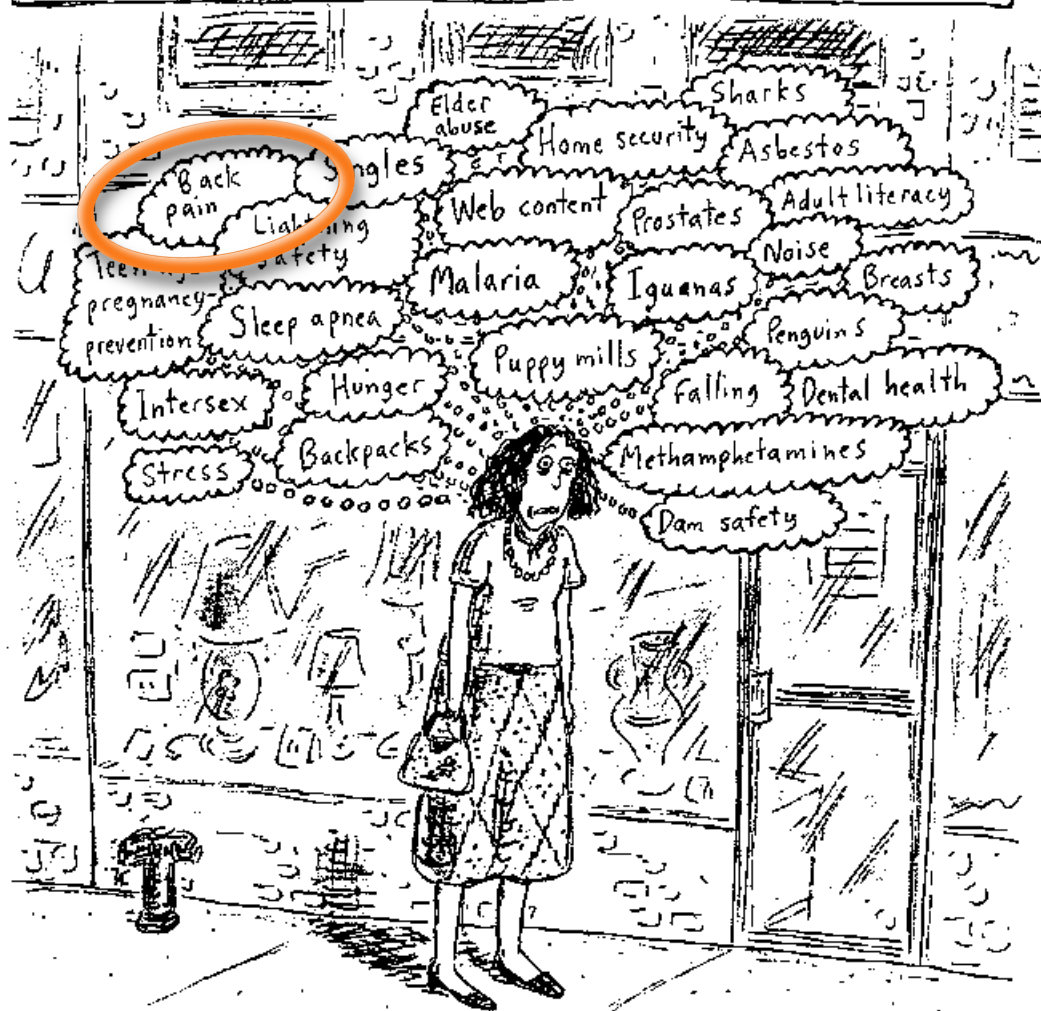 Elder
abuse
Sharks
Home security
Asbestos
Back
pain
Web content
Prostates
Adult literacy
Lightning
safety
Noise
pregnancy
prevention
Malaria
Iguanas
Breasts
Sleep apnea
Penguins
Puppy mills
Intersex
Hunger
Falling
Dental health
Stress
Backpacks
Methamphetamines
Dam safety